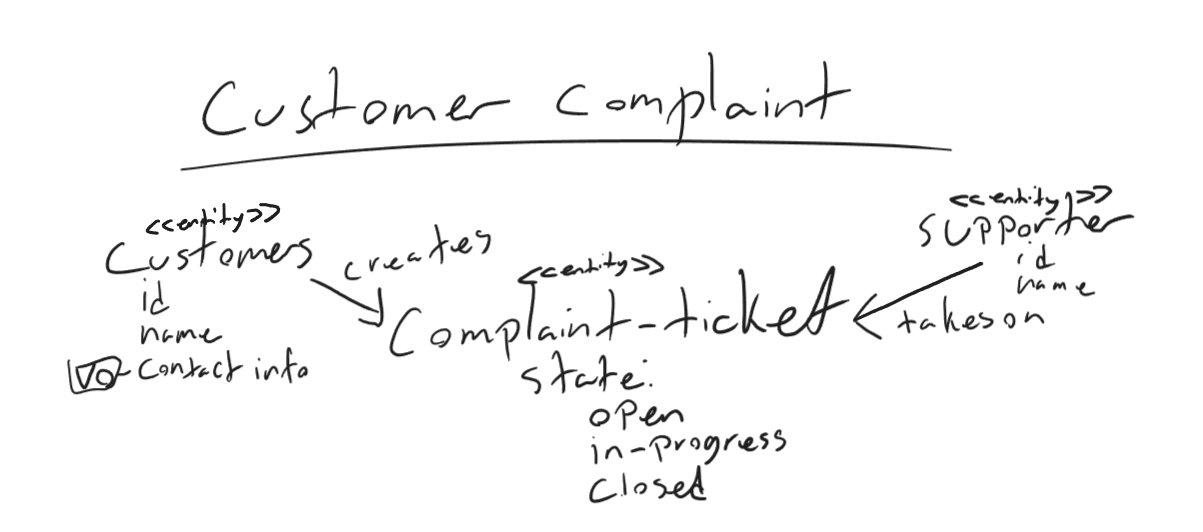 Customer Complaint
<<entity>>
Customers
id
name
VO Contact info
creates
<<entity>>
Complaint-ticket
state:
open
in-progress
closed
<<entity>>
supporter
id
name
takes on